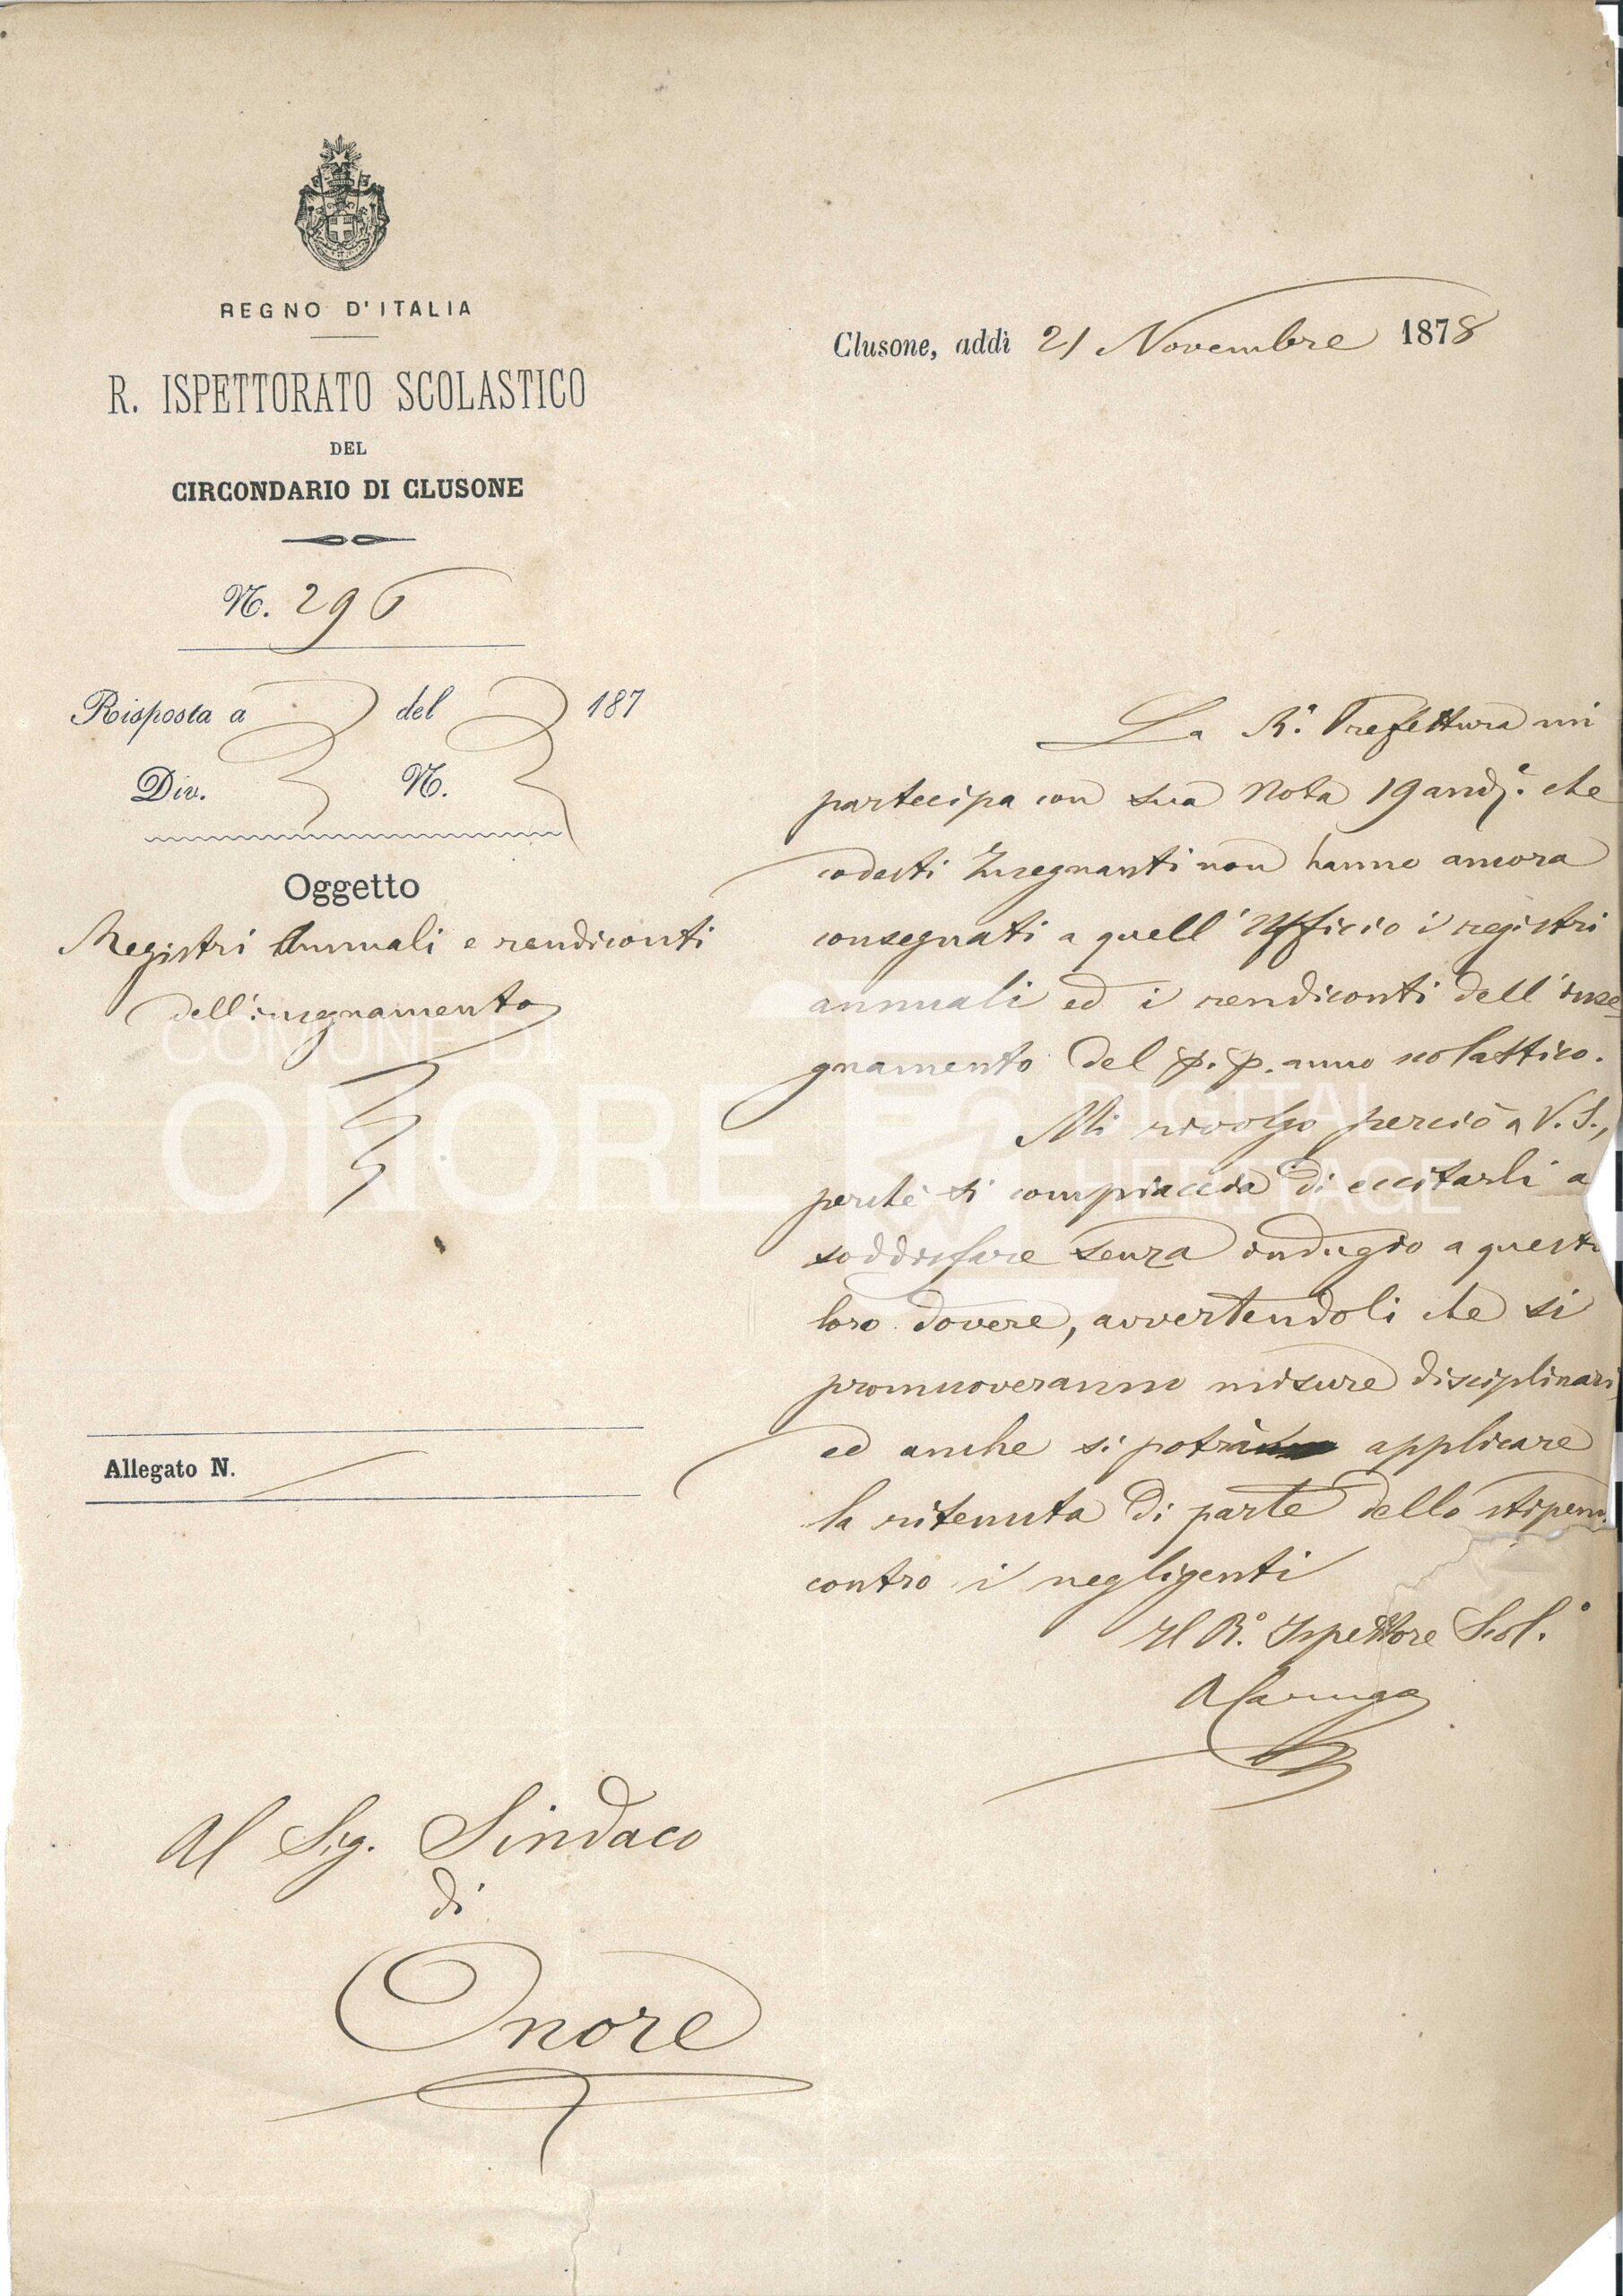 REGNO D'ITALIA
R. ISPETTORATO SCOLASTICO
DEL
CIRCONDARIO DI CLUSONE
N. 296
Risposta a del 187
Div. N.
Oggetto
Registri Annuali e rendiconti
dell'insegnamento
Allegato N.
Al Sig. Sindaco
di
Onore
Clusone, addì 21 Novembre 1878
La R.ª Prefettura mi
partecipa con sua Nota 19 and.e che
codesti Insegnanti non hanno ancora
consegnati a quell'Ufficio i registri
annuali ed i rendiconti dell'inse
gnamento del p.p. anno scolastico.
Mi rivolgo perciò a V.S.,
perché si compiaccia di eccitarli a
soddisfare senza indugio a questo
loro dovere, avvertendoli che si
promuoveranno misure disciplinari
ed anche si potrà applicare
la ritenuta di parte dello stipen
contro i negligenti
Il R.º Ispettore Scol.º
COMUNE DI
ONORE
DIGITAL
HERITAGE